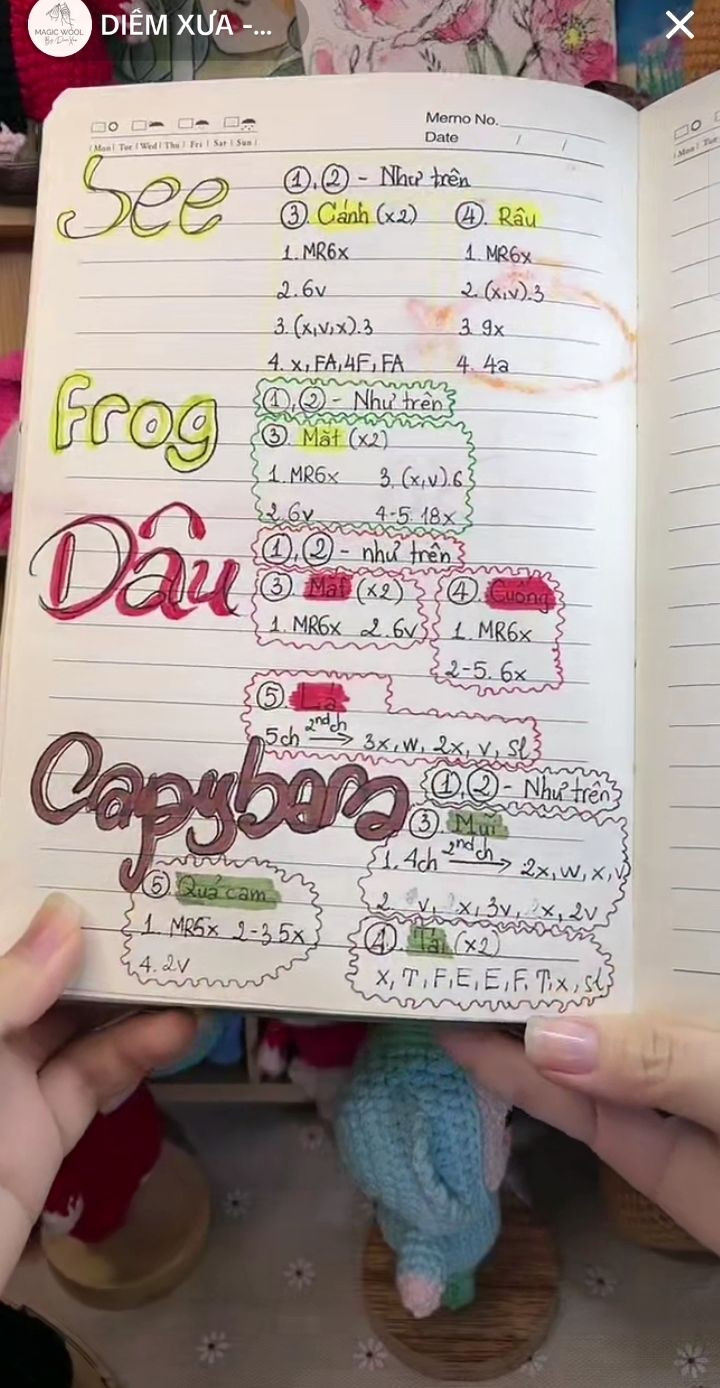 MAGIC WOOL
By: Diễm Xưa
DIỄM XƯA -...
Memo No.
Date / /
Mon Tue Wed Thu Fri Sat Sun
See
①,② - Như trên
③. Cánh (x2)
1. MR6x
2. 6v
3. (x,v,x).3
4. x, FA, 4F, FA
④. Râu
1. MR6x
2. (x,v).3
3. 9x
4. 4a
Frog
①,② - Như trên
③. Mắt (x2)
1. MR6x 3. (x,v).6
2. 6v 4-5. 18x
Dâu
①,② - như trên
③. Mắt (x2)
1. MR6x 2. 6v
④. Cuống
1. MR6x
2-5. 6x
⑤. Lá
5ch 2ndch→ 3x, w, 2x, v, sl
Capybara
①,② - Như trên
③. Mũi
1. 4ch 2ndch→ 2x, w, x, v
2. v, x, 3v, x, 2v
④. Tai (x2)
x, T, F, E, E, F, T, x, sl
⑤ Quả cam
1. MR5x 2-3 5x
4. 2v